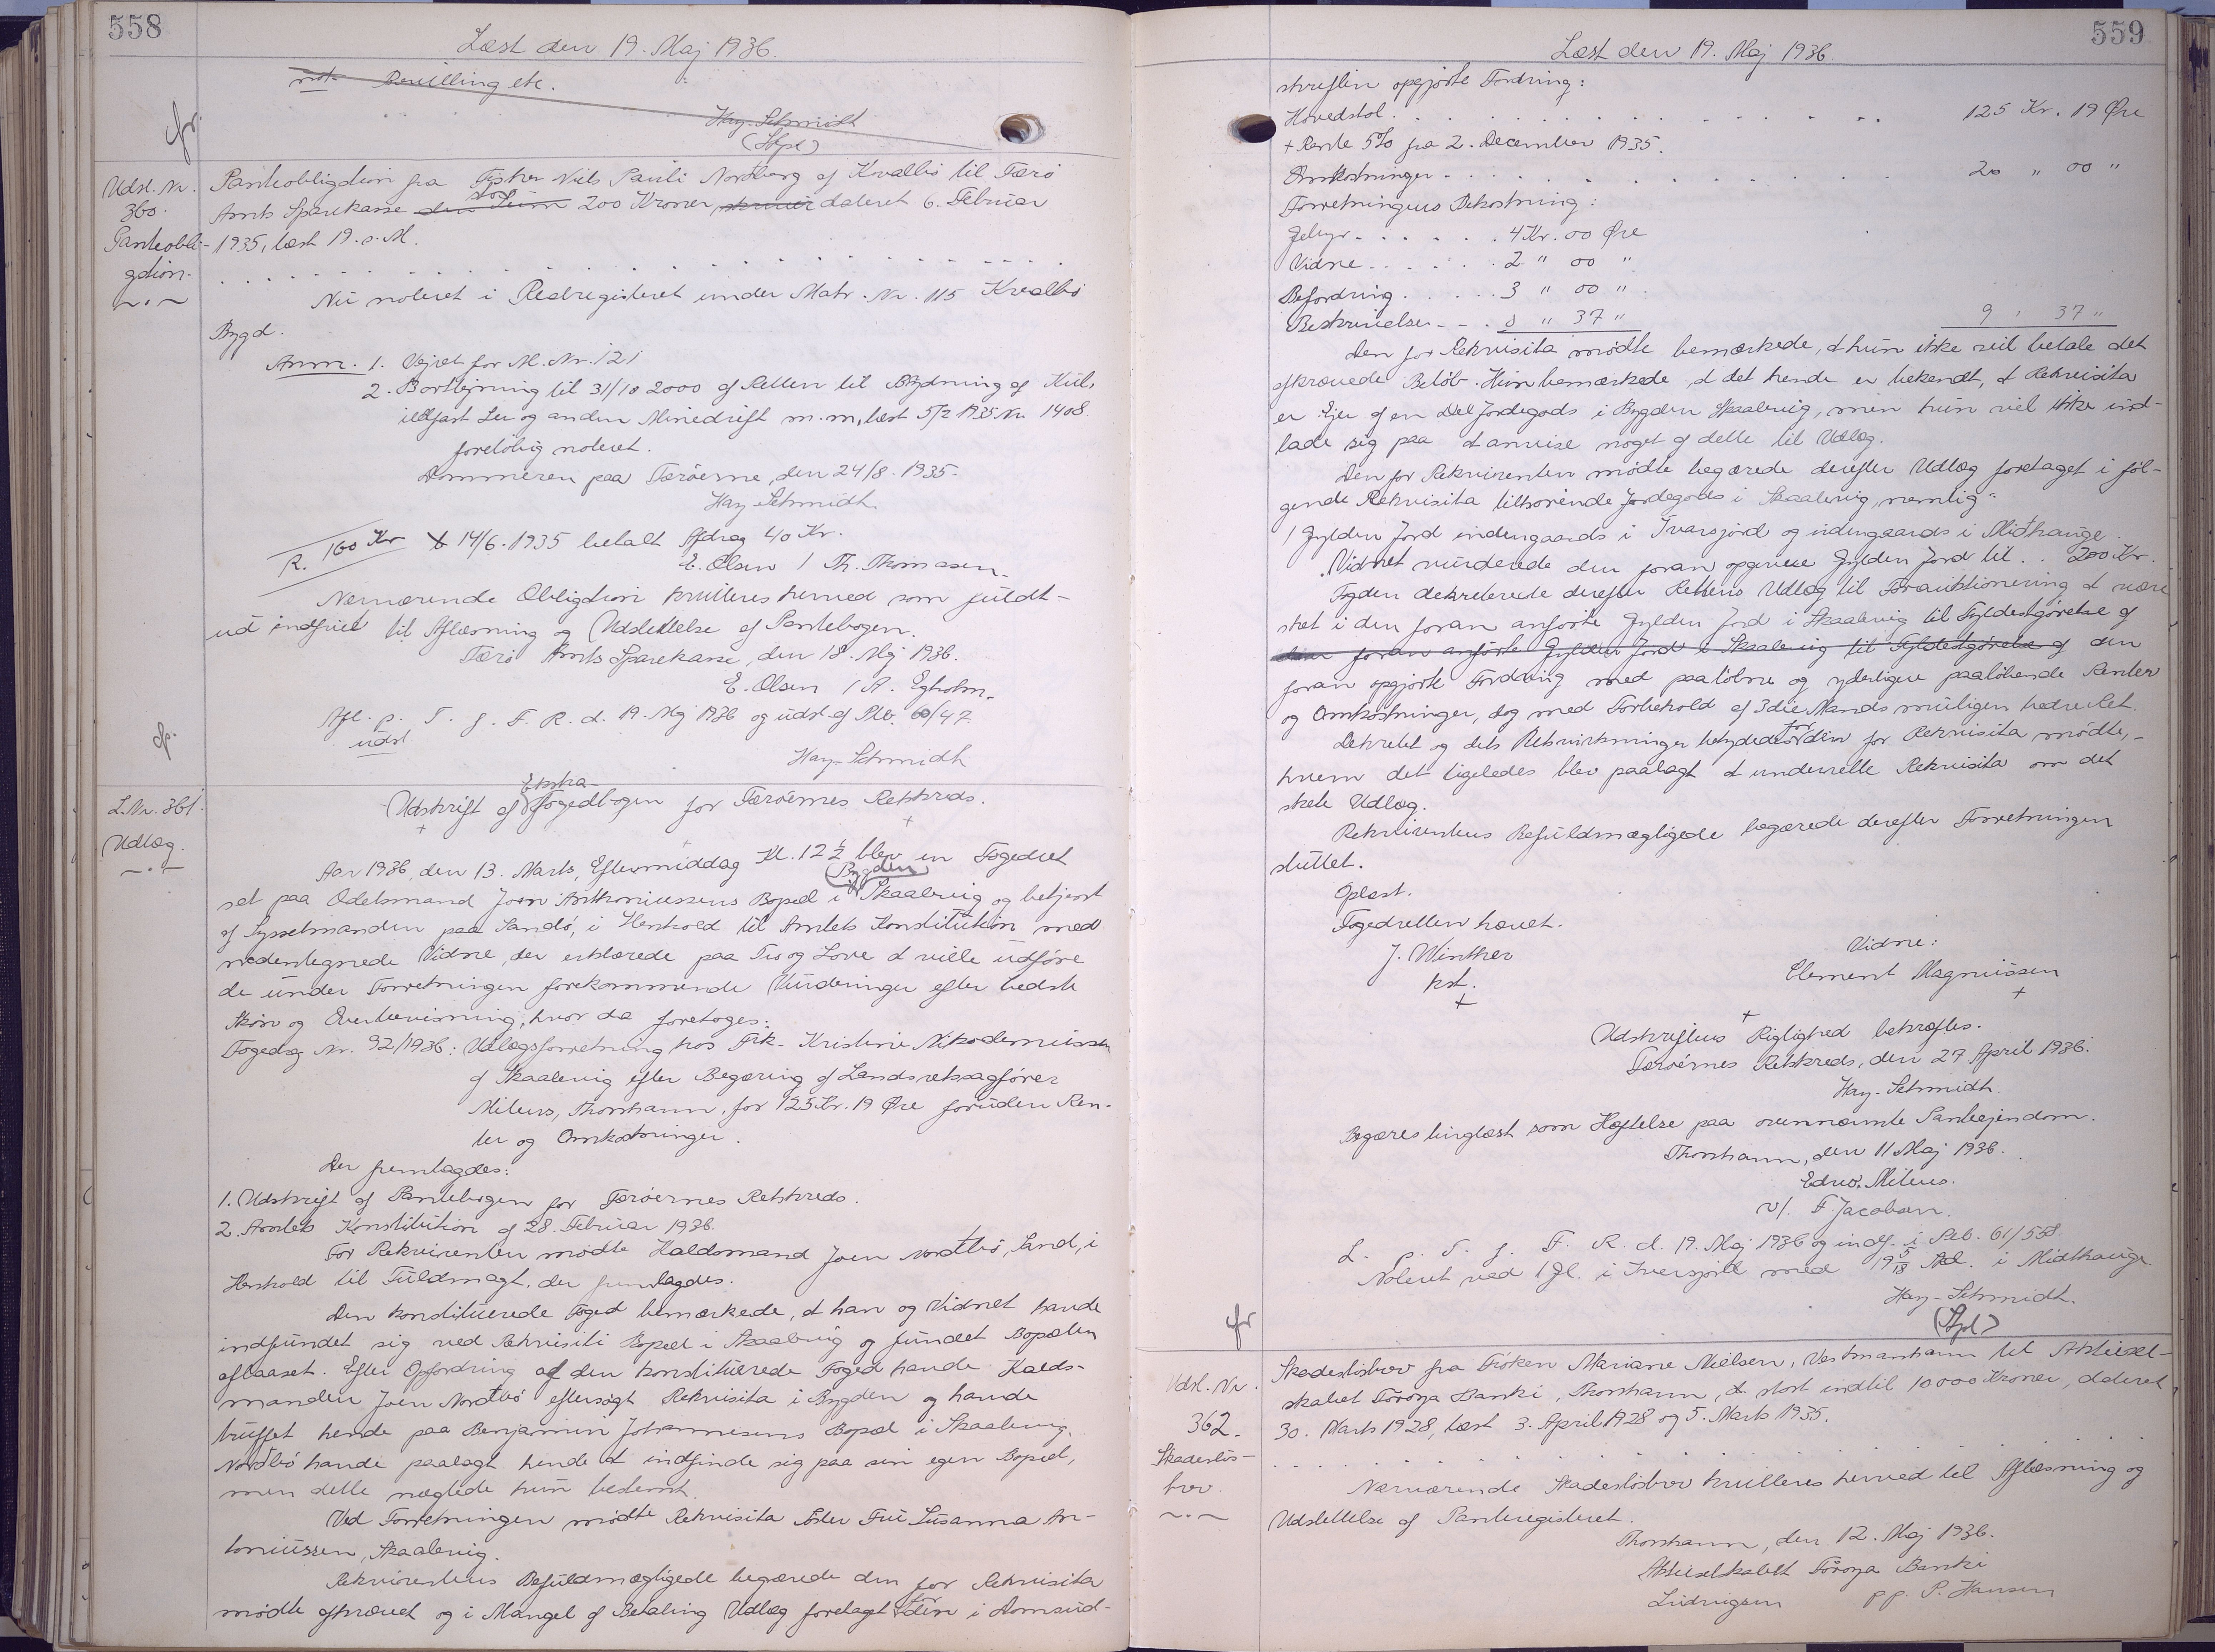 558
Læst den 19. Maj 1936.
not. Bevilling etc.
Hay-Schmidt
(Stpl)
Udsl. Nr. 360. Panteobligation.
Panteobligation fra Fisker Niels Pauli Nordberg af Kvalbø til Færø
Amts Sparekasse stor 200 Kroner dateret 6. Februar
1935, læst 19. s. M.
Nu noteret i Realregisteret under Matr. Nr. 115 Kvalbø
Bygd.
Anm. 1. Vejret for M. Nr. 121
2. Bortlejning til 31/10 2000 af Retten til Brydning af Kul,
ildfast Ler og anden Minedrift m.m, læst 5/2 1935 Nr. 1408.
foreløbig noteret.
Dommeren paa Færøerne, den 24/8. 1935.
Hay-Schmidt.
R. 160 Kr 14/6. 1935 betalt Afdrag 40 Kr.
E. Olsen / Th. Thomassen.
Nærværende Obligation kvitteres herved som fuldt-
ud indfriet til Aflæsning og Udslettelse af Pantebogen.
Færø Amts Sparekasse, den 18. Maj 1936.
E. Olsen / A. Egholm.
Afl. p. T. f. F. R. d. 19. Maj 1936 og udsl. af Pb. 60/47.
udsl
Hay-Schmidt
L. Nr. 361. Udlæg.
Udskrift af Ekstra-Fogedbogen for Færøernes Retskreds.
Aar 1936, den 13. Marts, Eftermiddag Kl. 12 ½ blev en Fogedret
sat paa Odelsmand Joen Anthoniussens Bopæl i Bygden Skaalevig og betjent
af Sysselmanden paa Sandø, i Henhold til Amtets Konstitution med
nedentegnede Vidne, der erklærede paa Tro og Love at ville udføre
de under Forretningen forekommende Vurderinger efter bedste
Skøn og Overbevisning, hvor da foretoges:
Fogedsag Nr. 92/1936: Udlægsforretning hos Frk. Kristine Nikodemussen
af Skaalevig efter Begæring af Landsretssagfører
Mitens, Thorshavn, for 125 Kr. 19 Øre foruden Ren-
ter og Omkostninger.
Der fremlagdes:
1. Udskrift af Pantebogen for Færøernes Retskreds.
2. Amtets Konstitution af 28. Februar 1936.
For Rekvirenten mødte Kaldsmand Joen Nordbø, Sand, i
Henhold til Fuldmagt, der fremlagdes.
Den konstituerede Foged bemærkede, at han og Vidnet havde
indfundet sig ved Rekvisiti Bopæl i Skaalevig og fundet Bopælen
aflaaset. Efter Opfordring af den konstituerede Foged havde Kalds-
manden Joen Nordbø eftersøgt Rekvisita i Bygden og havde
truffet hende paa Benjamin Johannesens Bopæl i Skaalevig.
Nordbø havde paalagt hende at indfinde sig paa sin egen Bopæl,
men dette nægtede hun bestemt.
Ved Forretningen mødte Rekvisita Søster Fru Susanna An-
toniussen, Skaalevig.
Rekvirentens Befuldmægtigede begærede den for Rekvisita
mødte afkrævet og i Mangel af Betaling Udlæg foretaget for den i Domsud-
559
Læst den 19. Maj 1936.
skriften opgjorte Fordring:
Hovedstol . . . 125 Kr. 19 Øre
+ Rente 5% fra 2. December 1935.
Omkostninger . . . 20 " 00 "
Forretningens Bekostning:
Gebyr . . . 4 Kr. 00 Øre
Vidne . . . 2 " 00 "
Befordring . . . 3 " 00 "
Beskrivelse . . . 0 " 37 " 9 " 37 "
Den for Rekvisita mødte bemærkede, at hun ikke vil betale det
afkrævede Beløb. Hun bemærkede at det hende er bekendt, at Rekvisita
er Ejer af en Del Jordegods i Bygden Skaalevig, men hun vil ikke ind-
lade sig paa at anvise noget af dette til Udlæg.
Den for Rekvirenten mødte begærede derefter Udlæg foretaget i føl-
gende Rekvisita tilhørende Jordegods i Skaalevig, nemlig:
1 Gylden Jord indengaards i Ivarsjord og udengaards i Midhauge.
Vidnet vurderede den foran opgivne Gylden Jord til . . 200 Kr.
Fogden dekreterede derefter Rettens Udlæg til Forauktionering at være
sket i den foran anførte Gylden Jord i Skaalevig til Fyldestgørelse af
den foran anførte Gylden Jord i Skaalevig til Fyldestgørelse af den
foran opgjorte Fordring med paaløbne og yderligere paaløbende Renter
og Omkostninger, dog med Forbehold af 3die Mands muligen bedre Ret.
Dekretet og dets Retsvirkninger betydedes for den for Rekvisita mødte,-
hvem det ligeledes blev paalagt at underrette Rekvisita om det
skete Udlæg.
Rekvirentens Befuldmægtigede begærede derefter Forretningen
sluttet.
Oplæst.
Fogedretten hævet.
J. Winther
kst.
Vidne:
Clement Magnussen
Udskriftens Rigtighed bekræftes.
Færøernes Retskreds, den 27 April 1936.
Hay-Schmidt.
Begæres tinglæst som Hæftelse paa ovennævnte Pantejendom.
Thorshavn, den 11 Maj 1936.
Edw. Mitens.
v/. F. Jacobsen.
L. p. T. f. F. R. d. 19. Maj 1936 og indf. i Pb. 61/558
Noteret ved 1 Gl. i Iversjord med 19 5/18 Ad. i Midthauge
Hay-Schmidt.
(Stpl)
Udsl. Nr. 362. Skadesløsbrev.
Skadesløsbrev fra Frøken Mariane Nielsen, Vestmanhavn til Aktiesel-
skabet Føroya Banki, Thorshavn, stort indtil 10000 Kroner, dateret
30. Marts 1928, læst 3. April 1928 og 5. Marts 1935.
Nærværende Skadesløsbrev kvitteres herved til Aflæsning og
Udslettelse af Panteregisteret.
Thorshavn, den 12. Maj 1936.
Aktieselskabet Føroya Banki
Ludvigsen pp. P. Hansen